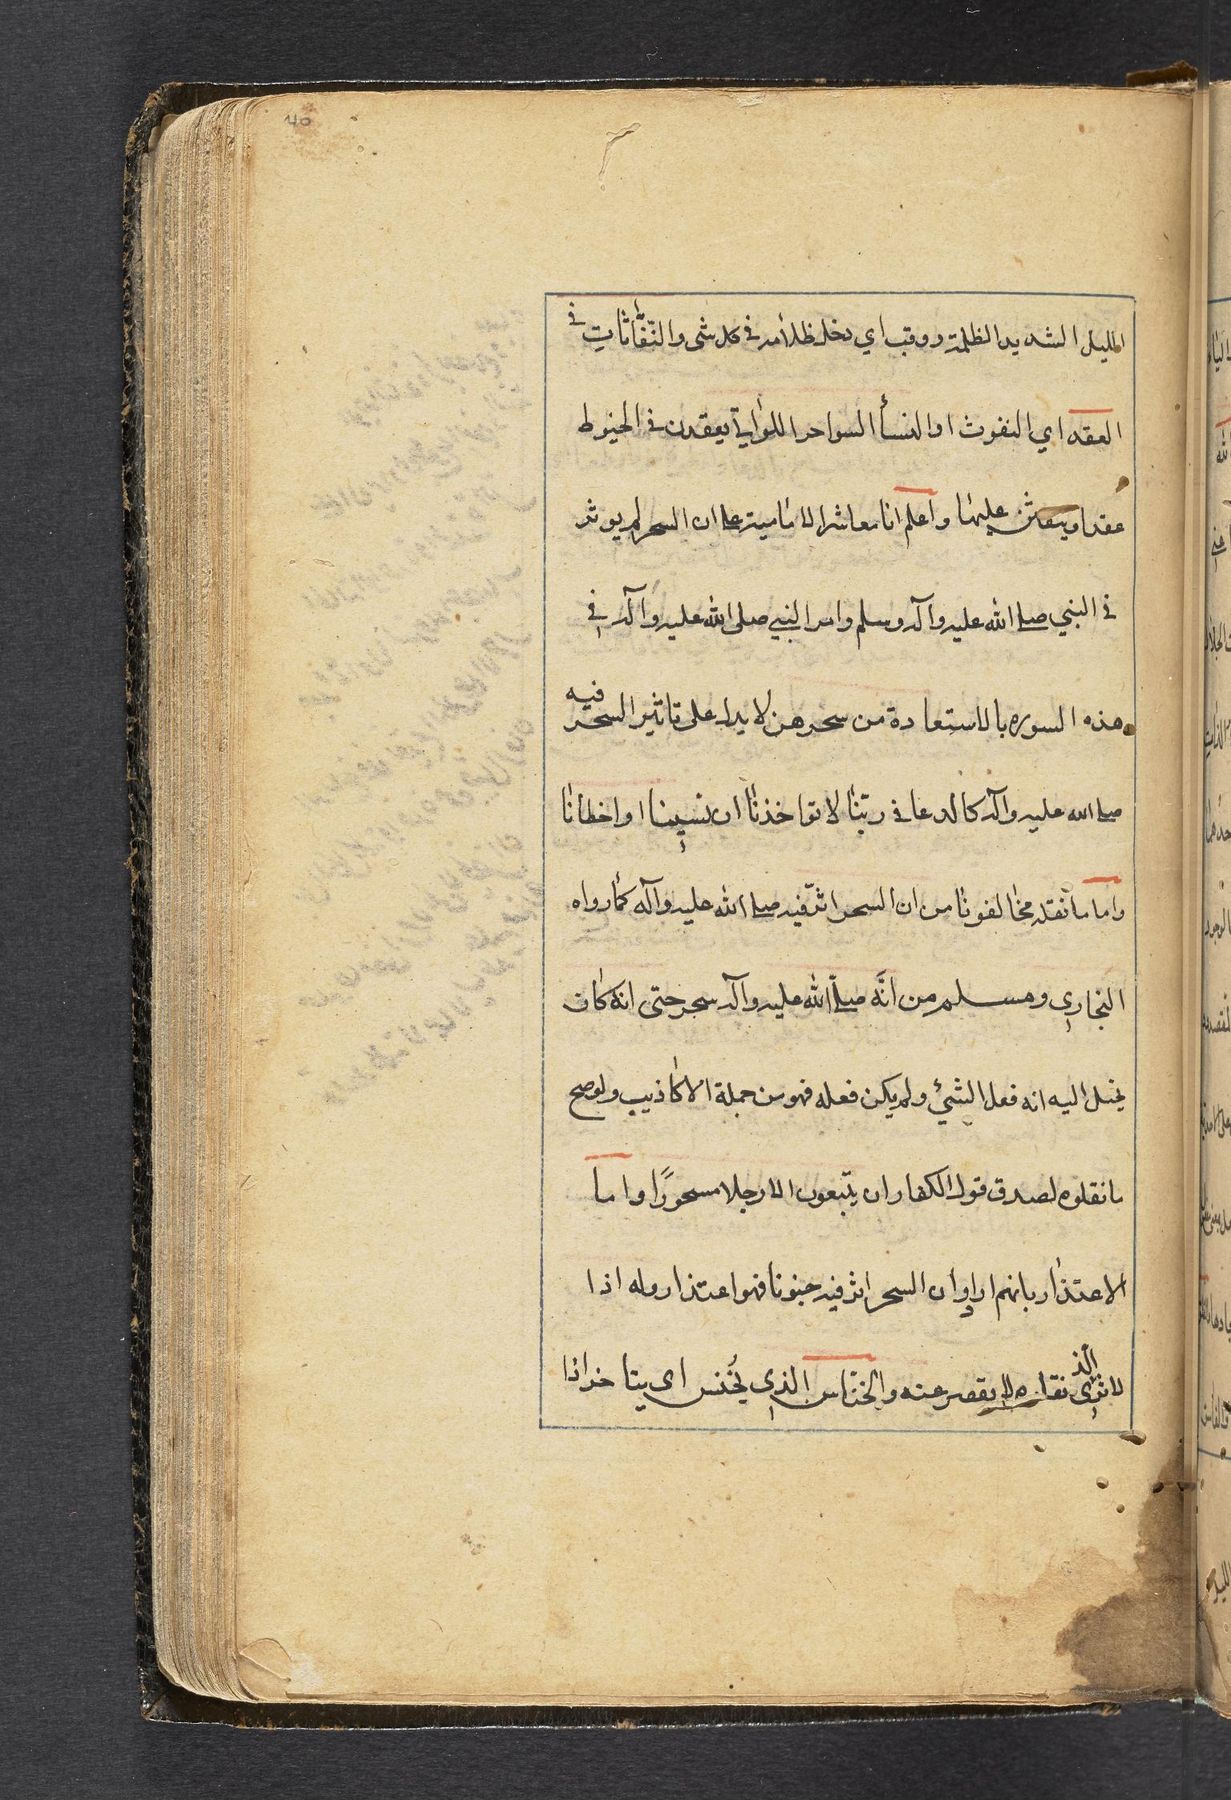 40
الليل الشديد الظلمة ووقب اي دخل ظلامه في كل شي والنّفّاثاتِ في
العقد اي النفوث او النسأ السواحر اللواتي يعقدن في الخيوط
عقدا وينفثن عليها واعلم انا معاشر الامامية على ان السحر لم يوثر
في النبي صلى الله عليه وآله وسلم وامر النبي صلى الله عليه وآله في
هذه السوره بالاستعاذة من سحرهن لا يدل على تاثير السحر فيه
صلى الله عليه وآله كالدعا في ربّنا لا تواخذنا ان نسينا او اخطانا
واما ما نقله مخالفونا من ان السحر اثّر فيه صلى الله عليه وآله كما رواه
البخاري ومسلم من انّه صلّى الله عليه وآله سحر حتى انه كان
يخيل اليه انه فعل الشيء ولم يكن فعله فهو من جملة الاكاذيب ولو صح
ما نقلوه لصدق قول الكفار ان يتبعون الا رجلا مسحورًا واما
الاعتذار بانهم ارادوا ان السحر اثر فيه جنونا فهو اعتذار وله اذا
الاثر الّذي نقلوه لا يقصر عنه والخنّاس الذي يخُنس اى يتاخر اذا